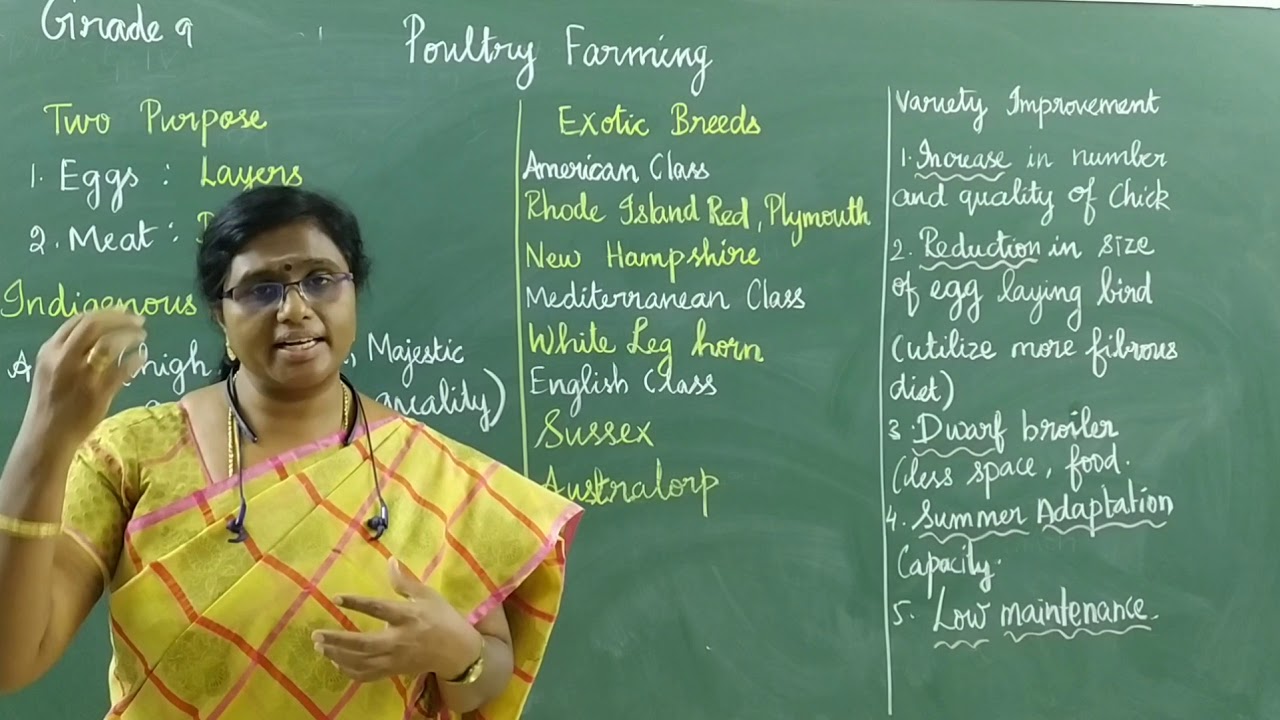 Grade 9
Poultry Farming
Two Purpose
1. Eggs : Layers
2. Meat :
Indigenous
(high , Majestic
quality)
Exotic Breeds
American Class
Rhode Island Red, Plymouth
New Hampshire
Mediterranean Class
White Leg horn
English Class
Sussex
Australorp
Variety Improvement
1. Increase in number
and quality of Chick
2. Reduction in size
of egg laying bird
(utilize more fibrous
diet)
3. Dwarf broiler
(less space, food.
4. Summer Adaptation
Capacity.
5. Low maintenance.